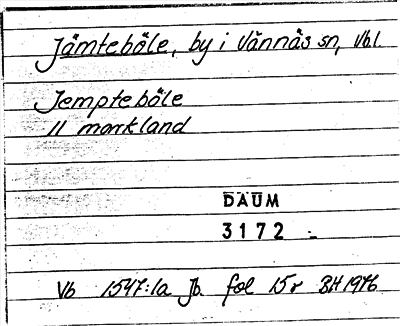 Jämteböle, by i Vännäs sn, Vbl.
Jempteböle
11 markland
DAUM
3172
Vb 1547:1a Jb. fol 15 r BH 1976